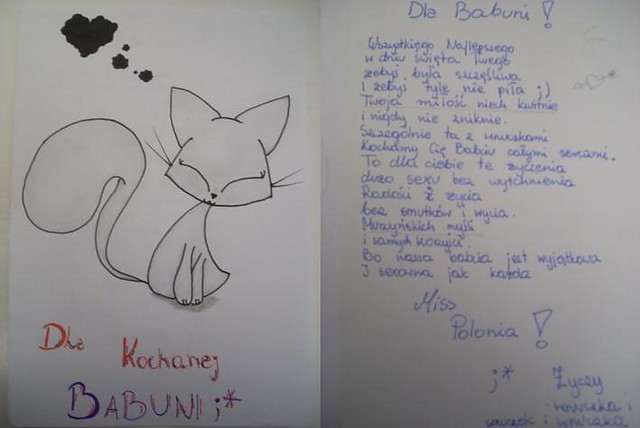 Dla Kochanej
BABUNI ;*
Dla Babuni!
Wszystkiego Najlepszego
w dniu święta Twego
żebyś była szczęśliwa
i żebyś tyle nie piła ;)
Twoja miłość niech kwitnie
i nigdy nie zniknie.
Szczególnie ta z wnuczkami
Kochamy Cię Babiu całymi sercami.
To dla ciebie te życzenia
dużo sexu bez wytchnienia
Radośi z życia
bez smutków i wycia.
Murzyńskich myśli
i samych
Bo nasza babcia jest wyjątkowa
I sexowna jak każda
Miss
Polonia!
;* Życzy
wnuczka i
wnuczek i wnuczka